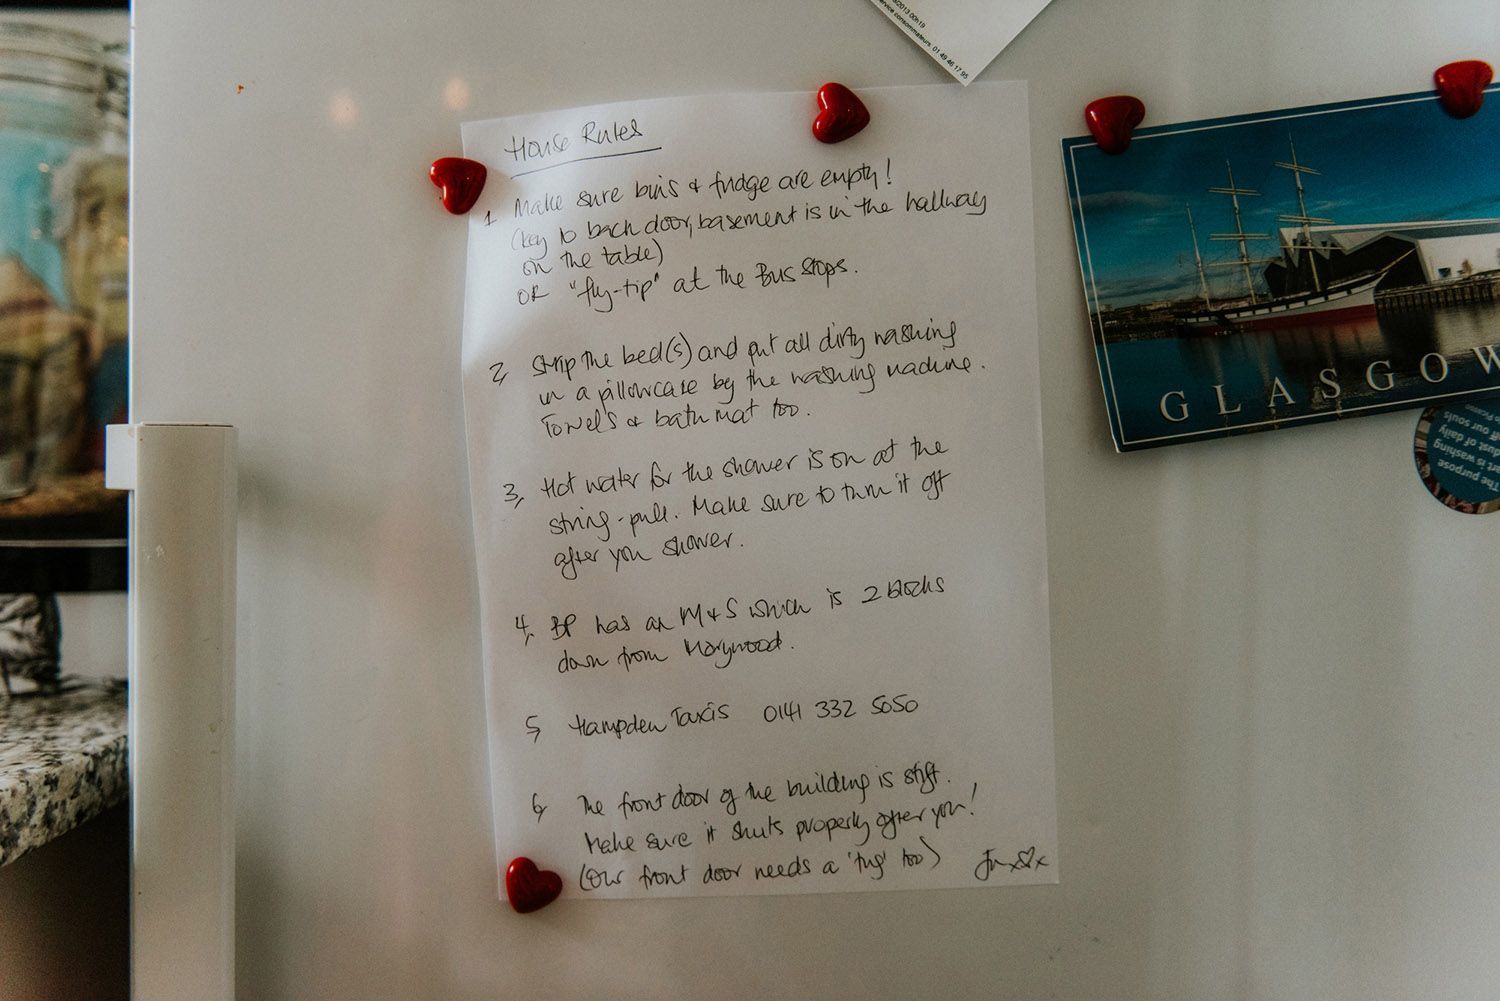 /2013 00h19
service consommateurs 01 49 46 17 95
House Rules
1 Make sure bins & fridge are empty!
(key to back door, basement is in the hallway
on the table)
OR "fly-tip" at the Bus Stops.
2, Strip the bed(s) and put all dirty washing
in a pillowcase by the washing machine.
Towels & bath mat too.
3, Hot water for the shower is on at the
string-pull. Make sure to turn it off
after you shower.
4, BP has an M&S which is 2 blocks
down from Marywood.
5, Hampden Taxis 0141 332 5050
6, The front door of the building is stiff.
Make sure it shuts properly after you!
(Our front door needs a 'tug' too)
GLASGOW
The purpose
art is washing
dust of daily
off our souls